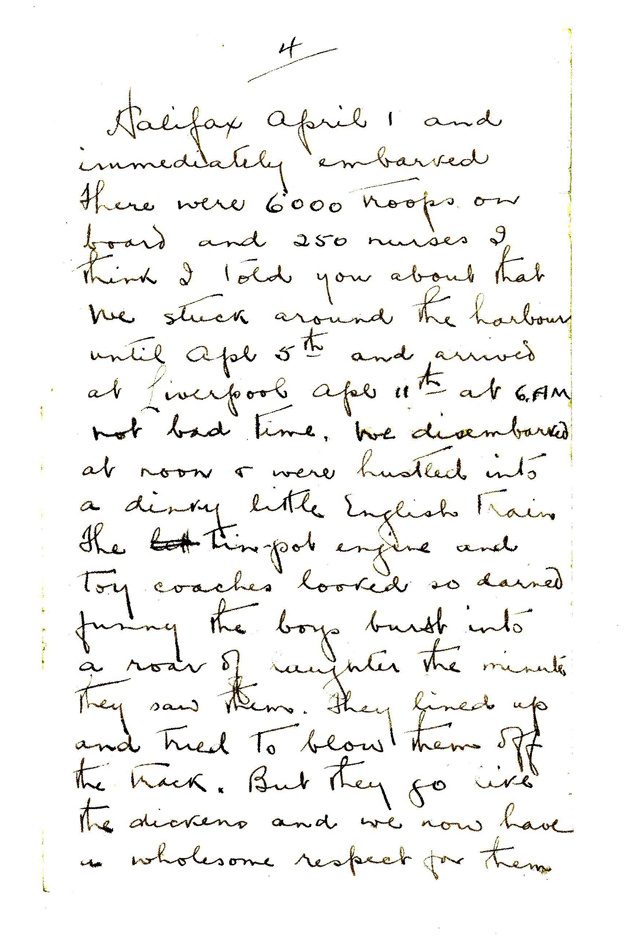 4
Halifax April 1 and
immediately embarked
There were 6000 troops on
board and 250 nurses I
think I told you about that
We stuck around the harbour
until Apl 5th and arrived
at Liverpool Apl 11th at 6.AM
not bad time. We disembarked
at noon & were hustled into
a dinky little English Train
The tin-pot engine and
Toy coaches looked so darned
funny the boys burst into
a roar of laughter the minute
they saw them. They lined up
and tried to blow them off
the track. But they go like
the dickens and we now have
a wholesome respect for them